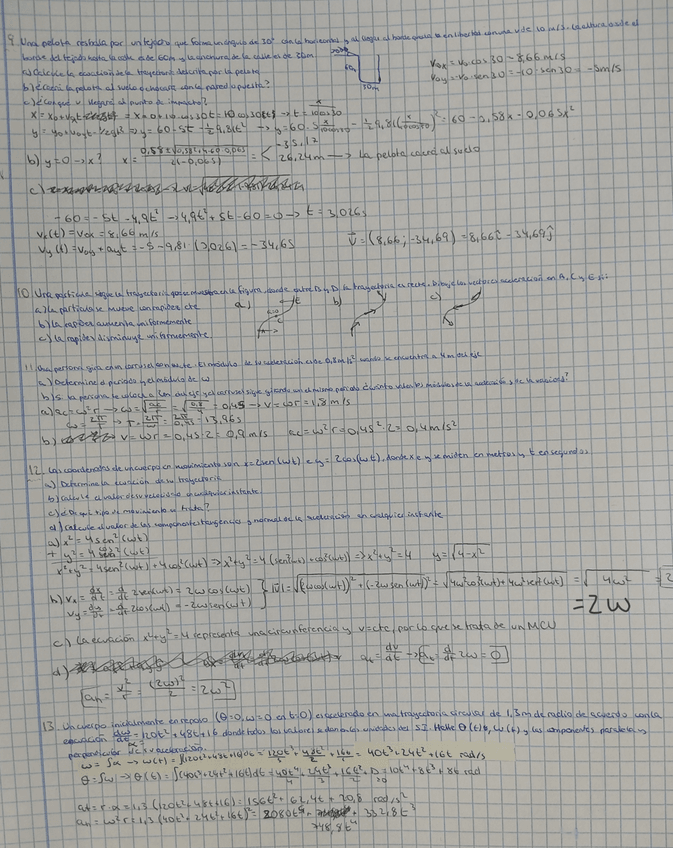 9. Una pelota resbala por un tejado que forma un ángulo de 30° con la horizontal y al llegar al borde queda en libertad con una v de 10 m/s. La altura desde el
borde del tejado hasta la calle es de 60m y la anchura de la calle es de 20m
a) Calcule la ecuación de la trayectoria descrita por la pelota
b) ¿Caerá la pelota al suelo o chocará con la pared opuesta?
c) ¿Con qué v llegará al punto de impacto?
60m
V0x = V0 cos 30 = 8,66 m/s
V0y = V0 sen 30 = -10 · sen 30 = -5 m/s
y = 60 - 0,58x - 0,065x²
b) y=0 → x?
-35,12
26,24m → La pelota caerá al suelo
c)
-60 = -5t - 4,9t² → 4,9t² + 5t - 60 = 0 → t = 3,026s
Vx(t) = V0x = 8,66 m/s
Vy(t) = V0y + ayt = -5 - 9,81 · (3,026) = -34,69
V = (8,66; -34,69) = 8,66i - 34,69j
10. Una partícula sigue la trayectoria que se muestra en la figura, donde entre B y D la trayectoria es recta. Dibuje los vectores aceleración en A, C y E si:
a) La partícula se mueve con rapidez cte
b) la rapidez aumenta uniformemente
c) la rapidez disminuye uniformemente
a)
b)
c)
11. Una persona gira en un carrusel constante. El módulo de su aceleración es de 0,8 m/s² cuando se encuentra a 4m del eje
a) Determine el periodo y el módulo de ω
a) ac = ω²r → ω = √ac/r = √0,8/4 = 0,45 → V = ωr = 1,8 m/s
ω = 2π/T → T = 2π/ω = 2π/0,45 = 13,96s
b) V = ωr = 0,45 · 2 = 0,9 m/s ac = ω²r = 0,45² · 2 = 0,4 m/s²
12. Las coordenadas de un cuerpo en movimiento son x = 2sen(ωt) e y = 2cos(ωt), donde x e y se miden en metros y t en segundos
a) Determine la ecuación de su trayectoria
b) Calcule el valor de su velocidad en cualquier instante
c) ¿De qué tipo de movimiento se trata?
d) Calcule el valor de las componentes tangencial y normal de la aceleración en cualquier instante
a) x² = 4sen²(ωt)
+ y² = 4cos²(ωt)
x²+y² = 4sen²(ωt) + 4cos²(ωt) → x²+y² = 4(sen²(ωt) + cos²(ωt)) → x²+y² = 4 y = √4-x²
b) Vx = dx/dt = d/dt 2sen(ωt) = 2ωcos(ωt)
Vy = dy/dt = d/dt 2cos(ωt) = -2ωsen(ωt)
|V| = √(2ωcos(ωt))² + (-2ωsen(ωt))² = √4ω²cos²(ωt) + 4ω²sen²(ωt) = √4ω²
= 2ω
c) La ecuación x²+y² = 4 representa una circunferencia y v = cte, por lo que se trata de un MCU
d) at = dv/dt → at = d/dt 2ω = 0
an = v²/r = (2ω)²/2 = 2ω²
13. Un cuerpo inicialmente en reposo (θ=0, ω=0 en t=0) es acelerado en una trayectoria circular de 1,3m de radio de acuerdo con la
ecuación α = 120t² + 48t + 16 donde todos los valores están en las unidades del SI. Halle θ(t), ω(t), y las componentes paralela y
perpendicular de su aceleración.
ω = ∫α → ω(t) = ∫(120t² + 48t + 16)dt = 120t³/3 + 48t²/2 + 16t = 40t³ + 24t² + 16t rad/s
θ = ∫ω → θ(t) = ∫(40t³ + 24t² + 16t)dt = 40t⁴/4 + 24t³/3 + 16t²/2 = 10t⁴ + 8t³ + 8t rad
at = r · α = 1,3 (120t² + 48t + 16) = 156t² + 62,4t + 20,8 rad/s²
an = ω²r = 1,3 (40t³ + 24t² + 16t)² = 2080t⁶ + 332,8t³
748,8t⁴